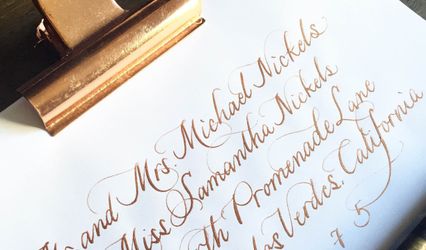 and Mrs. Michael Nickels
Miss Samantha Nickels
th Promenade Lane
Verdes, California
7 5